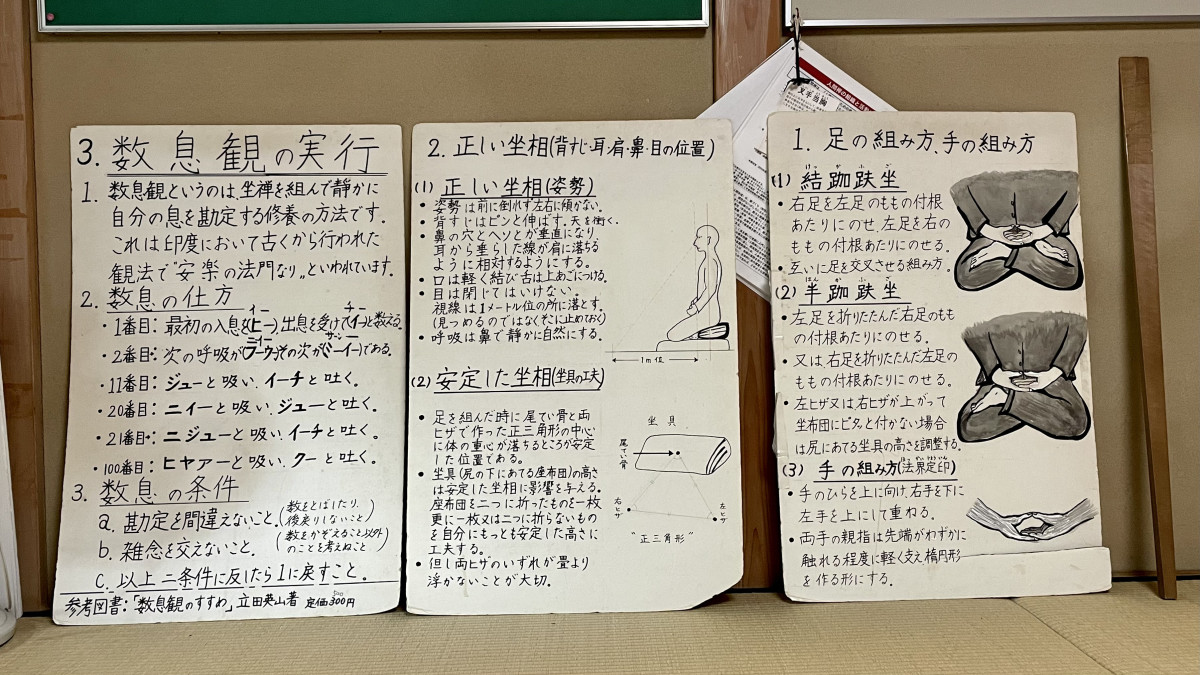 3. 数息観の実行
1. 数息観というのは、坐禅を組んで静かに
自分の息を勘定する修養の方法です。
これは印度において古くから行われた
観法で〝安楽の法門なり〟といわれています。
2. 数息の仕方
・1番目: 最初の入息を(ヒー)、出息を受けて(イーチー)と数える。
・2番目: 次の呼吸が(フーター)
・11番目: ジューと吸い、イーチと吐く。
・20番目: ニイーと吸い、ジューと吐く。
・21番目: ニジューと吸い、イーチと吐く。
・100番目: ヒャアーと吸い、クーと吐く。
3. 数息の条件
a. 勘定を間違えないこと。(数をとばしたり、後戻りしないこと)
b. 雑念を交えないこと。(数をかぞえること以外のことを考えぬこと)
c. 以上二条件に反したら1に戻すこと。
参考図書:「数息観のすすめ」立田英山著 定価300円
2. 正しい坐相(背すじ・耳・肩・鼻・目の位置)
(1) 正しい坐相(姿勢)
• 姿勢は前に倒れず左右に傾かない。
• 背すじはピンと伸ばす。天を衝く。
• 鼻の穴とヘソとが垂直になり、
耳から垂らした線が肩に落ちる
ように相対するようにする。
• 口は軽く結び舌は上あごにつける。
• 目は閉じてはいけない。
視線は1メートル位の所に落とす。
(見つめるのではなくそこに止めておく)
• 呼吸は鼻で静かに自然にする。
1m位
(2) 安定した坐相(坐具の工夫)
• 足を組んだ時に尾てい骨と両
ヒザで作った正三角形の中心
に体の重心が落ちるところが安定
した位置である。
• 坐具(尻の下にあてる座布団)の高さ
は安定した坐相に影響を与える。
座布団を二つに折ったものを一枚
更に一枚又は二つに折らないもの
を自分にもっとも安定した高さに
工夫する。
• 但し両ヒザのいずれが畳より
浮かないことが大切。
坐具
尾てい骨
右ヒザ
左ヒザ
"正三角形"
叉手当胸
1. 足の組み方、手の組み方
(1) 結跏趺坐
• 右足を左足のももの付根
あたりにのせ、左足を右の
ももの付根あたりにのせる。
• 互いに足を交叉させる組み方。
(2) 半跏趺坐
• 左足を折りたたんだ右足のもも
の付根あたりにのせる。
• 又は、右足を折りたたんだ左足の
ももの付根あたりにのせる。
• 左ヒザ又は右ヒザが上がって
坐布団にピタッと付かない場合
は尻にあてる坐具の高さを調整する。
(3) 手の組み方(法界定印)
• 手のひらを上に向け、右手を下に
左手を上にして重ねる。
• 両手の親指は先端がわずかに
触れる程度に軽く支え楕円形
を作る形にする。